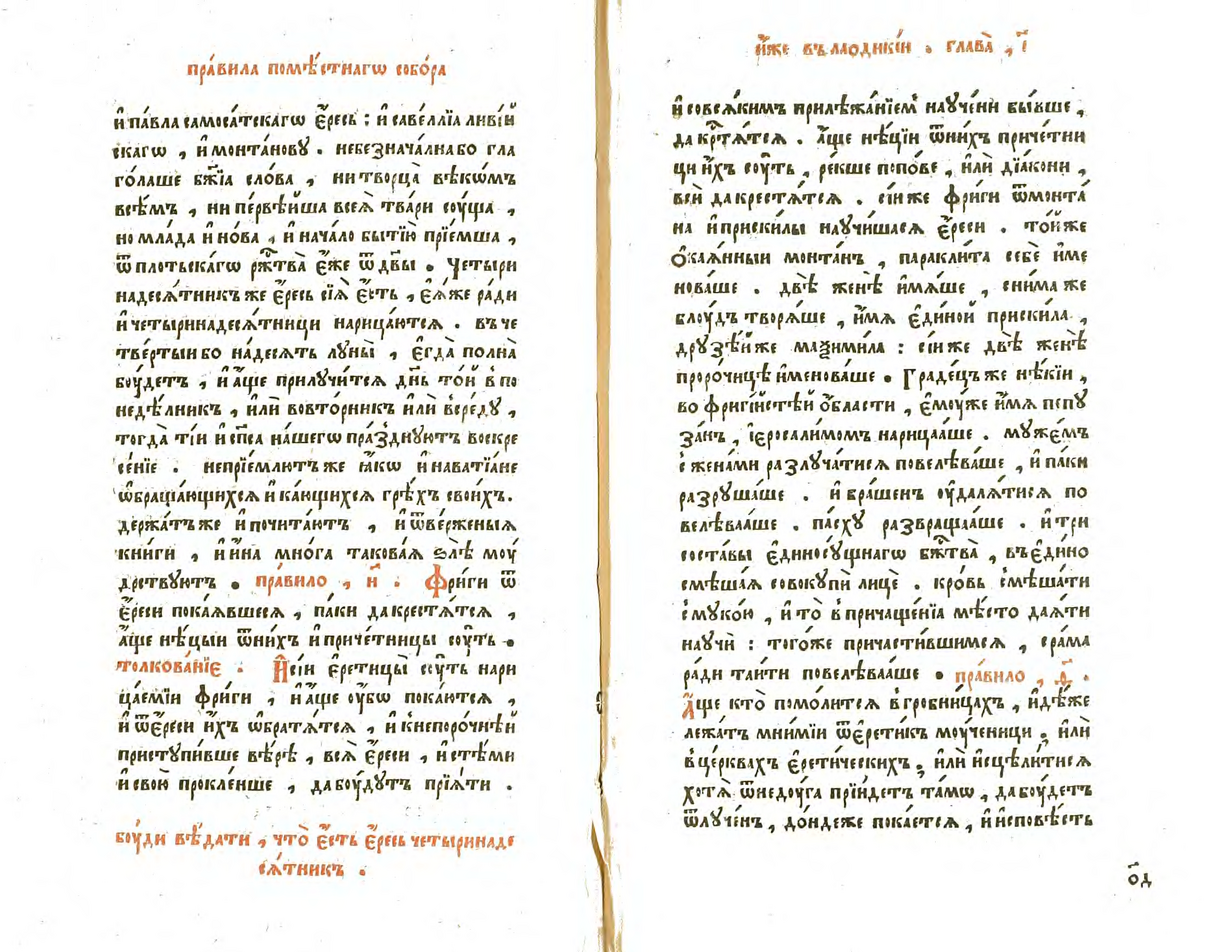 пра́вила помѣ́стнагѡ собо́ра
и҆ па́вла самоса́тскагѡ є҆́ресь : и҆ саве́ллїа ливі́й
скагѡ , и҆ монта́новꙋ . небезнача́лна бо гла
го́лаше бж҃їа сло́ва , ни творца̀ вѣ́кѡмъ
всѣ́мъ , ни пе́рвѣйша всеѧ̀ тва́ри соу́ща ,
но мла́да и҆ но́ва , и҆ нача́ло бытїю̀ прїе́мша ,
ѿ пло́тьскагѡ рж҇тва̀ є҆́же ѿ дв҃ы . Четыри
надесѧ́тникъ же є҆́ресь сїѧ̀ є҆́сть , є҆ѧ́же ра́ди
и҆ четыринадесѧ́тници нарица́ютсѧ . въ че
тве́ртыи бо на́десѧть лꙋны̀ , є҆гда̀ полна̀
боу́детъ , и҆ а҆́ще прилꙋчи́тсѧ дн҃ь то́й в по
недѣ́лникъ , и҆лѝ во вто́рникъ и҆лѝ в сре́дꙋ ,
тогда̀ ті́и и҆ сп҃са на́шегѡ пра́зднꙋютъ воскре
се́нїе . непрїе́млютъ же ꙗ҆́кѡ и҆ навати́ане
ѡ҆браща́ющихсѧ и҆ ка́ющихсѧ грѣ́хъ свои́хъ .
держа́тъ же и҆ почита́ютъ , и҆ ѿве́рженыѧ
кни́ги , и҆ и҆́на мно́га такова́ѧ ѕлѣ̀ моу́
дрствꙋютъ . пра́вило , и҃ . Фри́ги ѿ
є҆́реси пока́ѧвшесѧ , па́ки да крестѧ́тсѧ ,
а҆́ще нѣ́цыи ѿ ни́хъ и҆ приче́тницы соу́ть .
толкова́нїе . И҆ сі́и є҆ретицы̀ соу́ть нари
ца́емїи фри́ги , и҆ а҆́ще оу҆́бѡ пока́ютсѧ ,
и҆ ѿ є҆́реси и҆́хъ ѡ҆братѧ́тсѧ , и҆ к непоро́чнѣй
пристꙋпи́вше вѣ́рѣ , всѧ̀ є҆́реси , и҆ с тѣ́ми
и҆ свою̀ проклѣ́нше , да боу́дꙋтъ прїѧ́ти .
боу́ди вѣ́дати , что̀ є҆́сть є҆́ресь четыринаде
сѧ́тникъ .
и҆́же въ лаодикі́и . глава̀ , і҃
и҆ со всѧ́кимъ прилѣжа́нїемъ наоуче́ни бы́вше ,
да крⷭ҇тѧ́тсѧ . а҆́ще нѣ́цїи ѿ ни́хъ приче́тни
ци и҆́хъ соу́ть , ре́кше попо́ве , и҆лѝ дїа́кони ,
всѝ да крестѧ́тсѧ . сі́и же фри́ги ѿ монта́
на и҆ приски́лы наоучи́шасѧ є҆́реси . то́й же
о҆каѧ́нныи монта́нъ , паракли́та себѐ и҆ме
нова́ше . двѣ̀ женѣ̀ и҆мѧ́ше , с ни́ма же
блоу́дъ творѧ́ше , и҆́мѧ є҆ди́ной приски́ла ,
дрꙋзѣ́й же маѯими́ла : сі́и же двѣ̀ женѣ̀
проро́чицѣ и҆менова́ше . Гра́децъ же нѣ́кїи ,
во фриги́йстѣй о҆́бласти , є҆моу́же и҆́мѧ пепꙋ
за́нъ , і҆еросали́момъ нарица́аше . мꙋже́мъ
с жена́ми разлꙋча́тисѧ повелѣва́ше , и҆ па́ки
разрꙋша́ше . и҆ бра́шенъ оу҆далѧ́тисѧ по
велѣва́аше . па́схꙋ развраща́аше . и҆ три
соста́вы є҆диносоу́щнагѡ бж҇тва̀ , въ є҆ди́но
смѣша́ѧ совокꙋпѝ лицѐ . кро́вь смѣша́ти
с мꙋко́ю , и҆ то̀ в причаще́нїа мѣ́сто даѧ́ти
наоучѝ : того́же причасти́вшимсѧ , сра́ма
ра́ди таи́ти повелѣва́аше . пра́вило , ѳ҃ .
А҆́ще кто̀ помо́литсѧ в гробни́цахъ , и҆дѣ́же
лежа́тъ мни́мїи ѿ є҆рети́къ моу́ченици , и҆лѝ
в це́рквахъ є҆рети́ческихъ , и҆лѝ и҆сцѣли́тисѧ
хотѧ̀ ѿ недоу́га прїи́детъ та́мѡ , да боу́детъ
ѿлꙋче́нъ , до́ндеже пока́етсѧ , и҆ и҆сповѣ́сть
о҃д